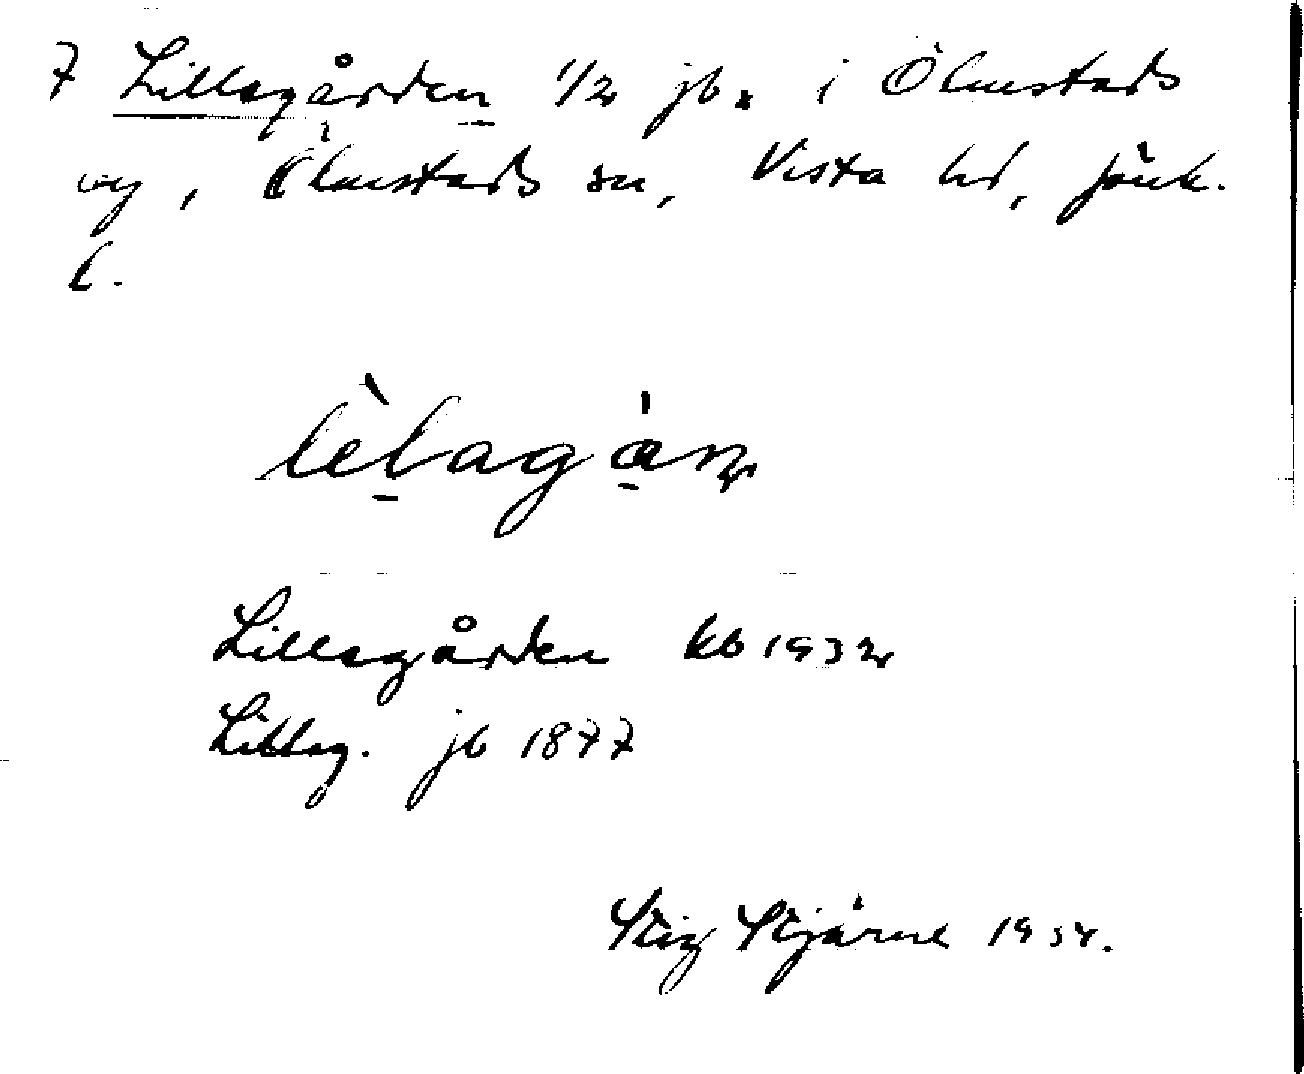 7 Lillegården 1/2 jb. i Ölmstads
by, Ölmstads sn, Vista hd, Jönk.
l.
lèlagán
Lillegården kb 1932
Lilleg. jb 1877
Stig Stjärne 1934.